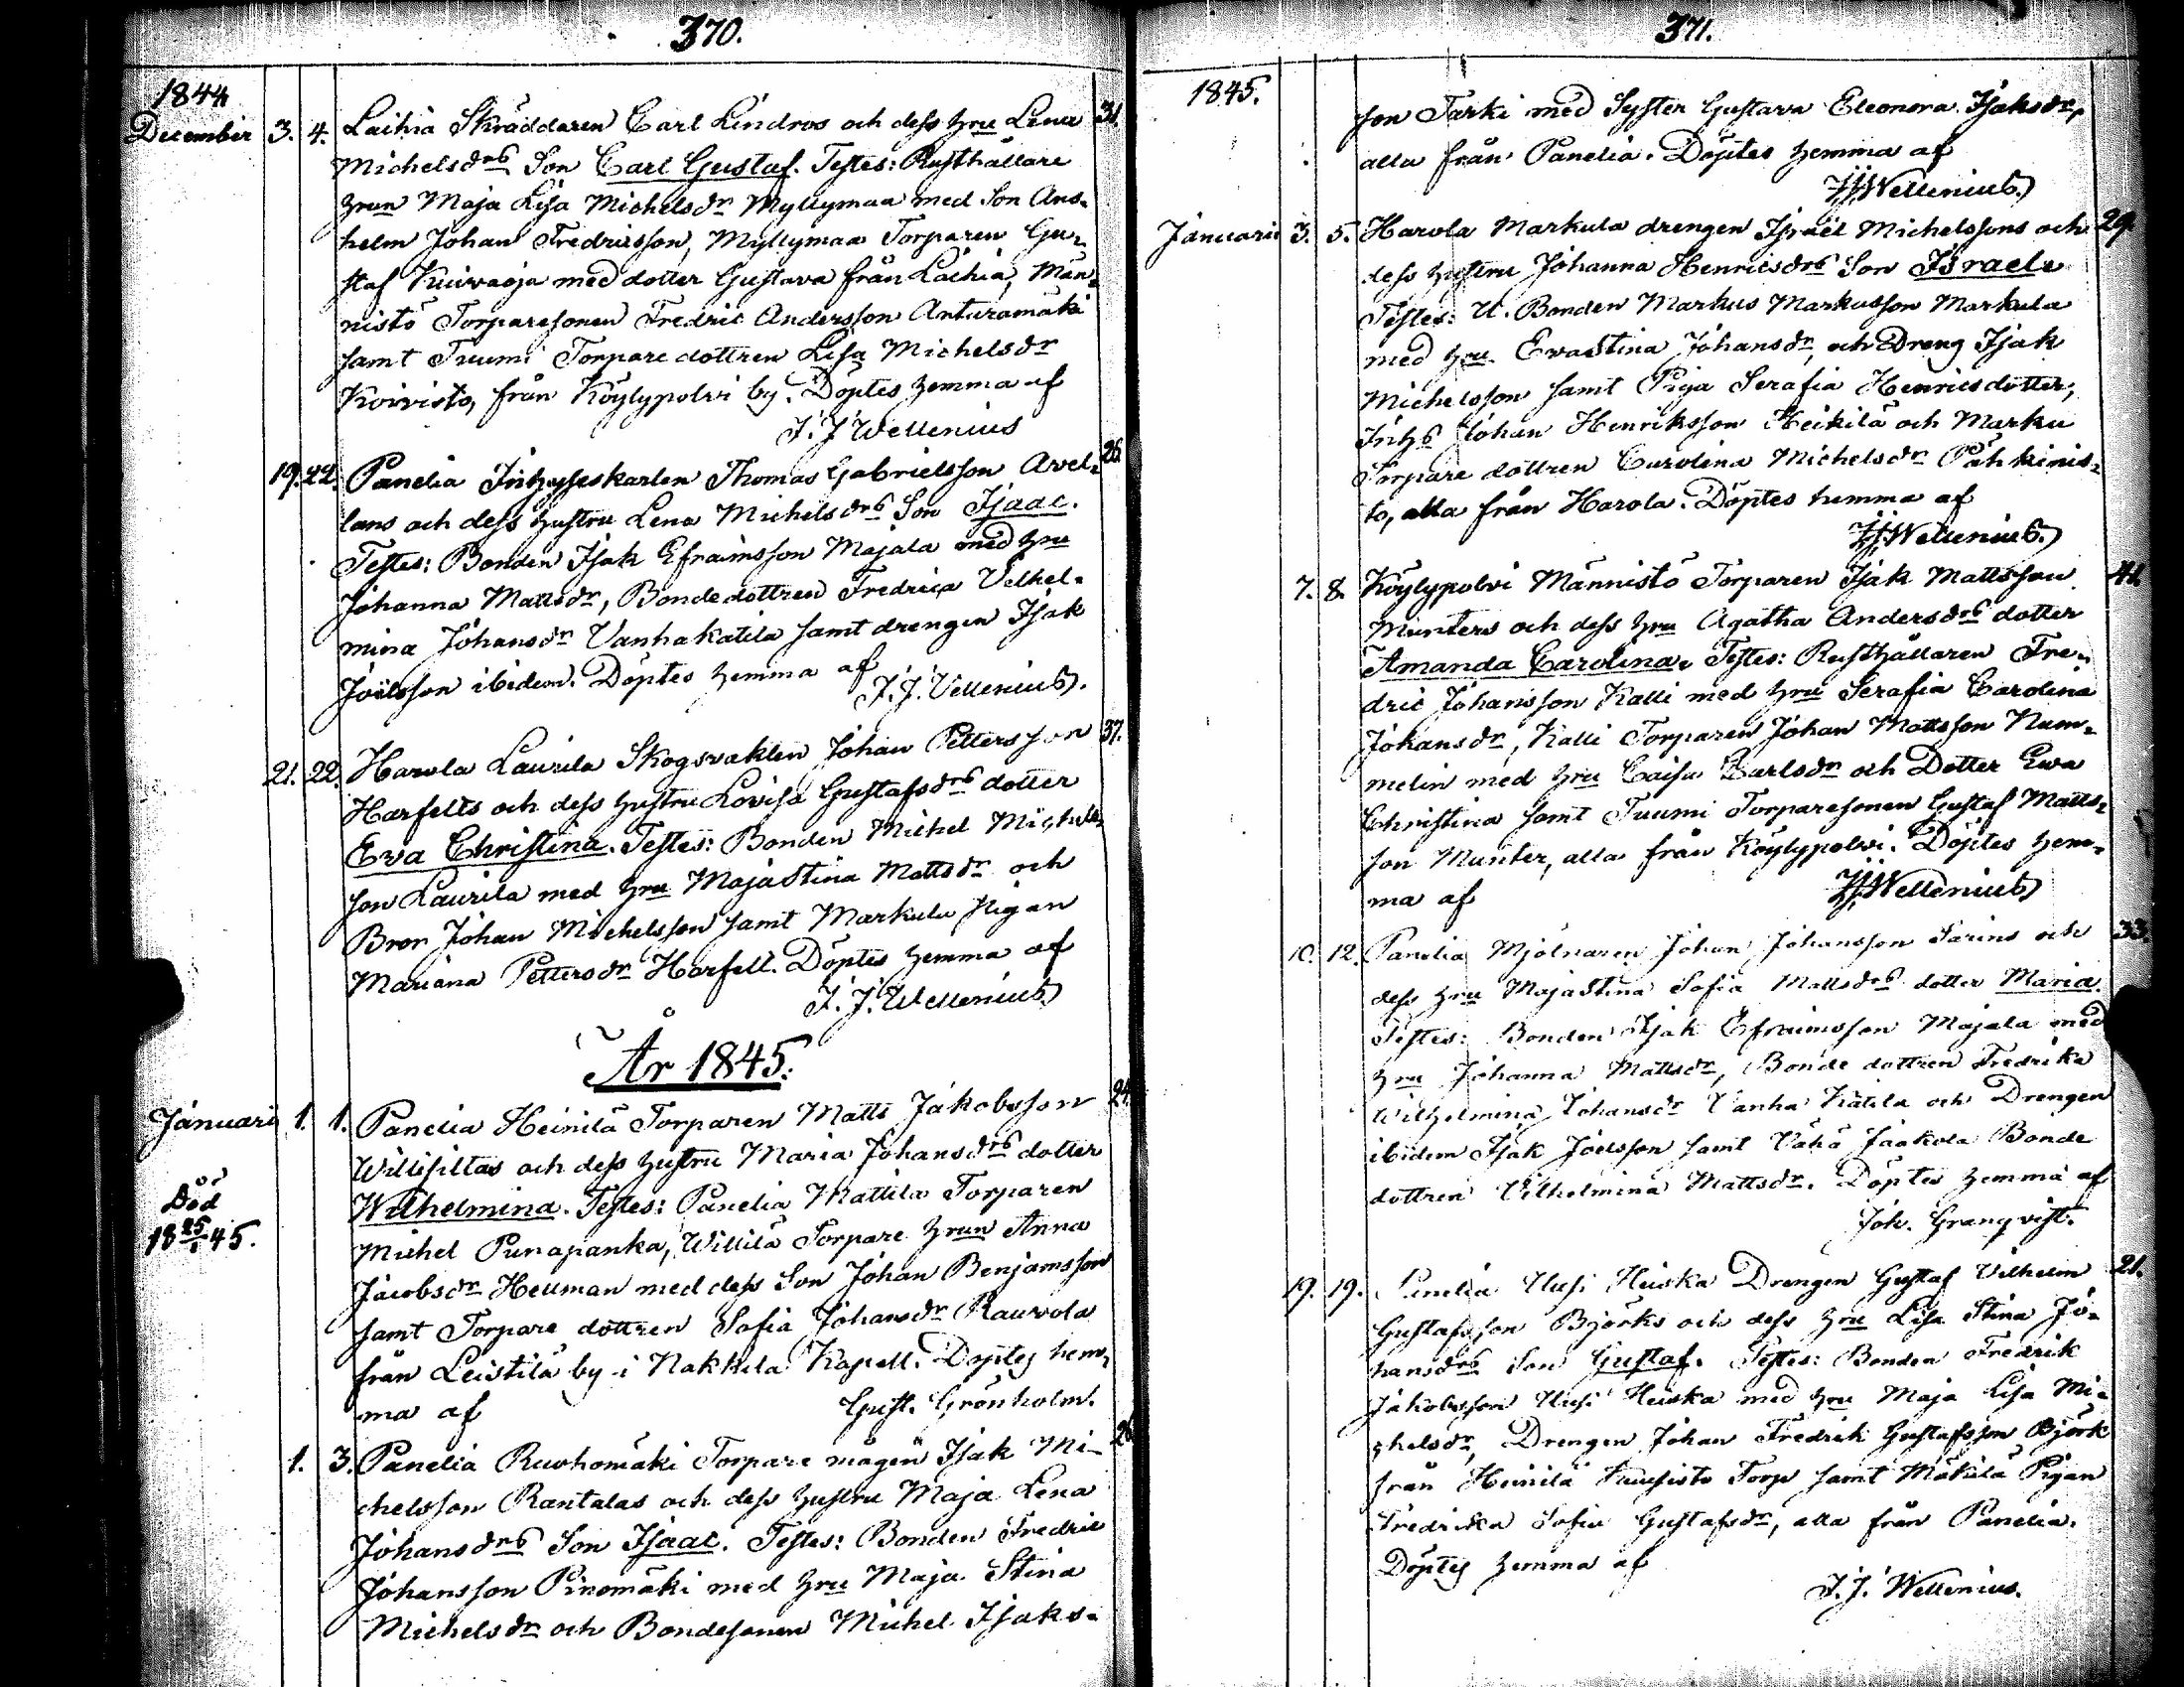 370.
1844
December 3. 4. Laihia Skräddaren Carl Lindros och dess hru Lena 31.
Michelsdrs Son Carl Gustaf. Testes: Rusthållare
hrun Maja Lisa Michelsdr Myllymaa med Son Ans-
helm Johan Fredricsson, Myllymaa Torparen Gu-
staf Kuivaoja med dotter Gustava från Laihia, Män-
nistö Torparesonen Fredric Andersson Anturamäki
samt Tuumi Torpare dottren Lisa Michelsdr
Koivisto, från Köylypolvi by. Döptes hemma af
J. J. Wellenius
19. 22. Panelia Inhyseskarlen Thomas Gabrielsson Avel- 26.
lans och dess hustru Lena Michelsdrs Son Isaac.
Testes: Bonden Isak Efraimsson Majala med hru
Johanna Mattsdr, Bondedottren Fredrica Vilhel-
mina Johansdr Vanhakatila samt drengen Isak
Joelsson ibidem. Döptes hemma af
J. J. Vellenius.
21. 22. Harola Laurila Skogsvakten Johan Pettersson 37.
Harfelts och dess hustru Lovisa Gustafsdrs dotter
Eva Christina. Testes: Bonden Michel Michels-
son Laurila med hru Maja Stina Mattsdr och
Bror Johan Michelsson samt Markula Pigan
Mariana Pettersdr Harfelt. Döptes hemma af
J. J. Wellenius
År 1845.
Januari 1. 1. Panelia Heinilä Torparen Matts Jakobsson 24.
Willisiltas och dess hustru Maria Johansdrs dotter
Wilhelmina. Testes: Panelia Mattila Torparen
Död
18 25/1 45.
Michel Punapanka, Willilä Torpare hrun Anna
Jacobsdr Hellman med dess Son Johan Benjamsson
samt Torpare dottren Sofia Johansdr Raurola
från Leistilä by i Nakkila Kapell. Döptes hem-
ma af Gust. Grönholm.
1. 3. Panelia Ruohomäki Torpare mågen Isak Mi- 26
chelsson Rantalas och dess hustru Maja Lena
Johansdrs Son Isaac. Testes: Bonden Fredric
Johansson Pinomäki med hru Maja Stina
Michelsdr och Bondesonen Michel Isaks-
371.
1845.
son Tarki med Syster Gustava Eleonora Isaksdr,
alla från Panelia. Döptes hemma af
J.J. Wellenius.
Januari 3. 5. Harola Markula drengen Israël Michelssons och 29.
dess hustru Johanna Henricsdrs Son Israel.
Testes: U. Bonden Markus Markusson Markula
med hru Evastina Johansdr, och Dreng Isak
Michelsson samt Piga Serafia Henricsdotter,
Inhs Johan Henriksson Heikilä och Marku
Torpare dottren Carolina Michelsdr Pähkinis-
to, alla från Harola. Döptes hemma af
J.J. Wellenius.
7. 8. Köylypolvi Männistö Torparen Isak Mattsson 41.
Munters och dess hru Agatha Andersdrs dotter
Amanda Carolina. Testes: Rusthållaren Fre-
dric Johansson Kalli med hru Serafia Carolina
Johansdr, Kalli Torparen Johan Mattsson Num-
melin med hru Caisa Carlsdr och Dotter Ewa
Christina samt Tuumi Torparesonen Gustaf Matts-
son Munter, alla från Köylypolvi. Döptes hem-
ma af J.J. Wellenius
10. 12. Panelia Mjölnaren Johan Johansson Sarins och 33.
dess hru Majastina Sofia Mattsdrs dotter Maria.
Testes: Bonden Isak Efraimsson Majala med
hru Johanna Mattsdr, Bonde dottren Fredrika
Wilhelmina Johansdr Vanha Katila och Drengen
ibidem Isak Joelsson samt Vähä Jaakola Bonde
dottren Vilhelmina Mattsdr. Döptes hemma af
Joh. Granqvist.
19. 19. Panelia Uusi Huiska Drengen Gustaf Vilhelm 21.
Gustafsson Björks och dess hru Lisa Stina Jo-
hansdrs Son Gustaf. Testes: Bonden Fredrik
Jakobsson Uusi Huiska med hru Maja Lisa Mi-
chelsdr, Drengen Johan Fredrik Gustafsson Björk
från Heinilä Kuusisto Torp samt Mäkilä Pigan
Fredrika Sofia Gustafsdr, alla från Panelia.
Döptes hemma af
J. J. Wellenius.